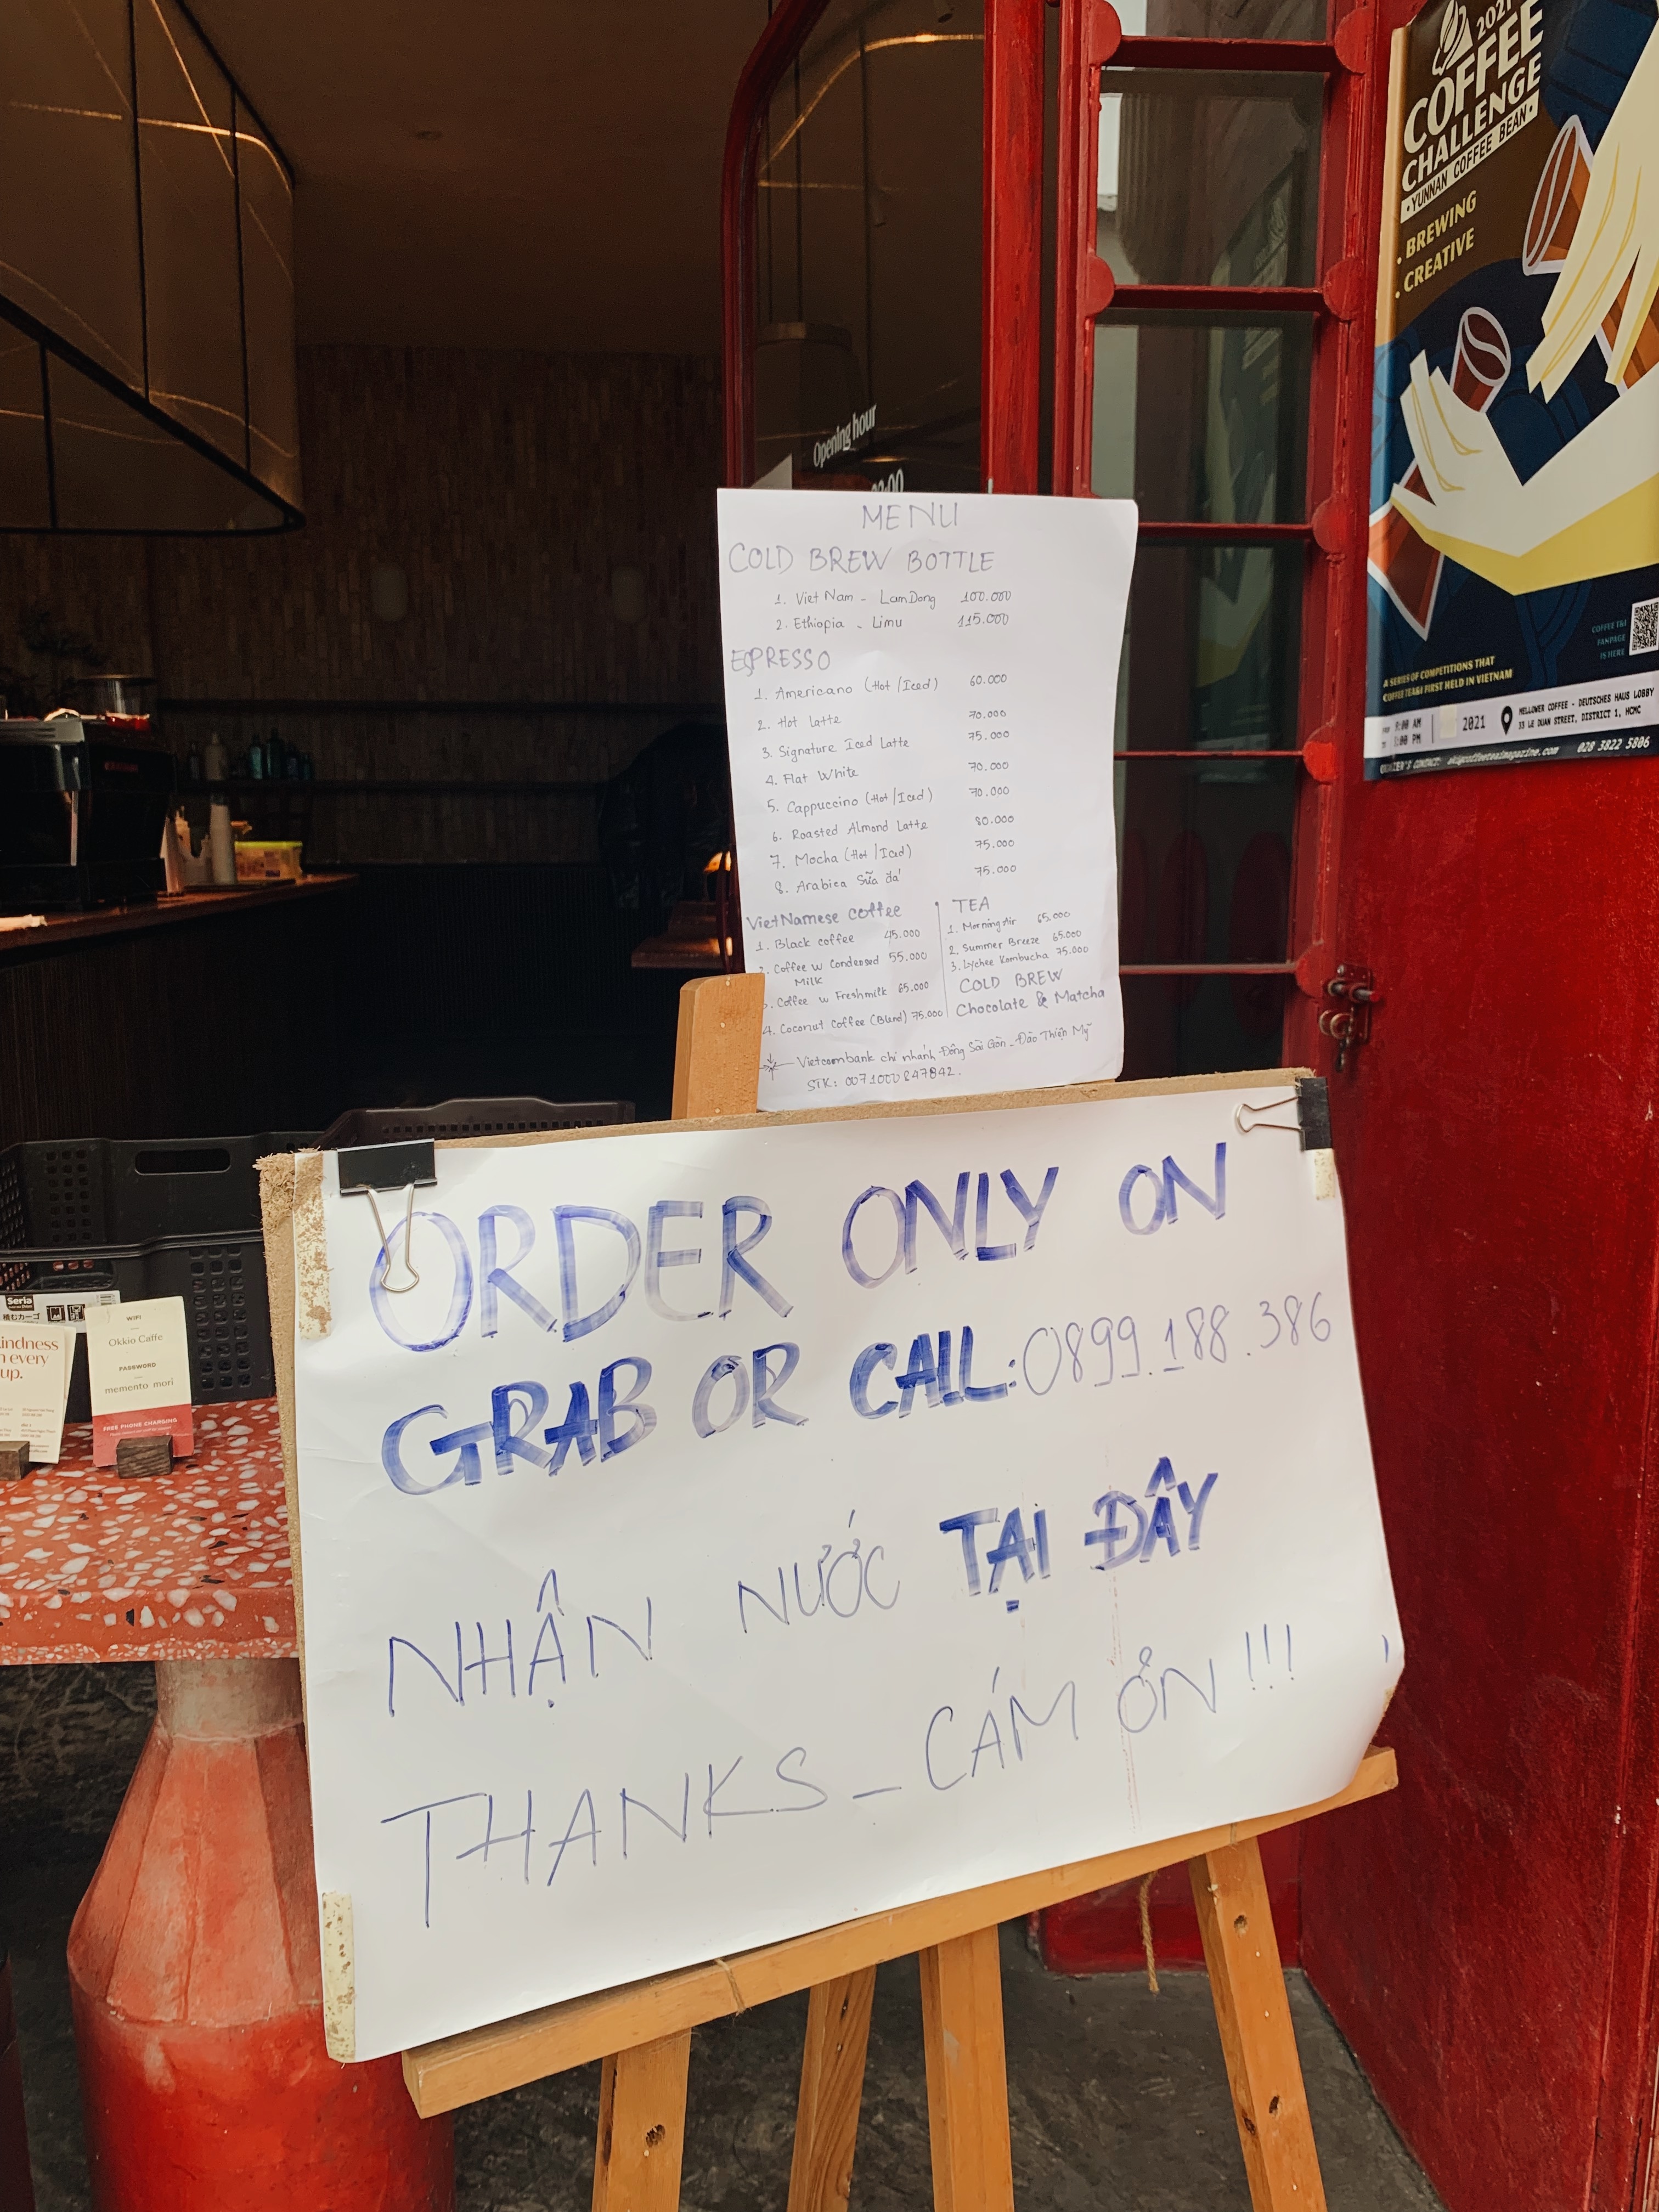 2021
COFFEE
CHALLENGE
•YUNNAN COFFEE BEAN•
• BREWING
• CREATIVE
COFFEE T&I
FANPAGE
IS HERE
A SERIES OF COMPETITIONS THAT
COFFEE TEA&I FIRST HELD IN VIETNAM
9:00 AM
2021
MELLOWER COFFEE - DEUTSCHES HAUS LOBBY
33 LE DUAN STREET, DISTRICT 1, HCMC
028 3822 5806
Opening hour
MENU
COLD BREW BOTTLE
1. Viet Nam - LamDong 100.000
2. Ethiopia - Limu 115.000
ESPRESSO
1. Americano (Hot / Iced) 60.000
2. Hot Latte 70.000
3. Signature Iced Latte 75.000
4. Flat White 70.000
5. Cappuccino (Hot / Iced) 70.000
6. Roasted Almond Latte 80.000
7. Mocha (Hot / Iced) 75.000
8. Arabica Sữa đá 75.000
VietNamese coffee
1. Black coffee 45.000
2. Coffee w Condensed 55.000
Milk
. Coffee w Freshmilk 65.000
4. Coconut Coffee (Blend) 75.000
TEA
1. Morning Air 65.000
2. Summer Breeze 65.000
3. Lychee Kombucha 75.000
COLD BREW
Chocolate & Matcha
Vietcombank chi nhánh Đông Sài Gòn - Đào Thiện Mỹ
STK: 0071000847842.
ORDER ONLY ON
GRAB OR CALL: 0899.188.386
NHẬN NƯỚC TẠI ĐÂY
THANKS - CÁM ƠN !!!
Seria
積むカーゴ
WIFI
Okkio Caffe
PASSWORD
memento mori
FREE PHONE CHARGING
indness
n every
up.